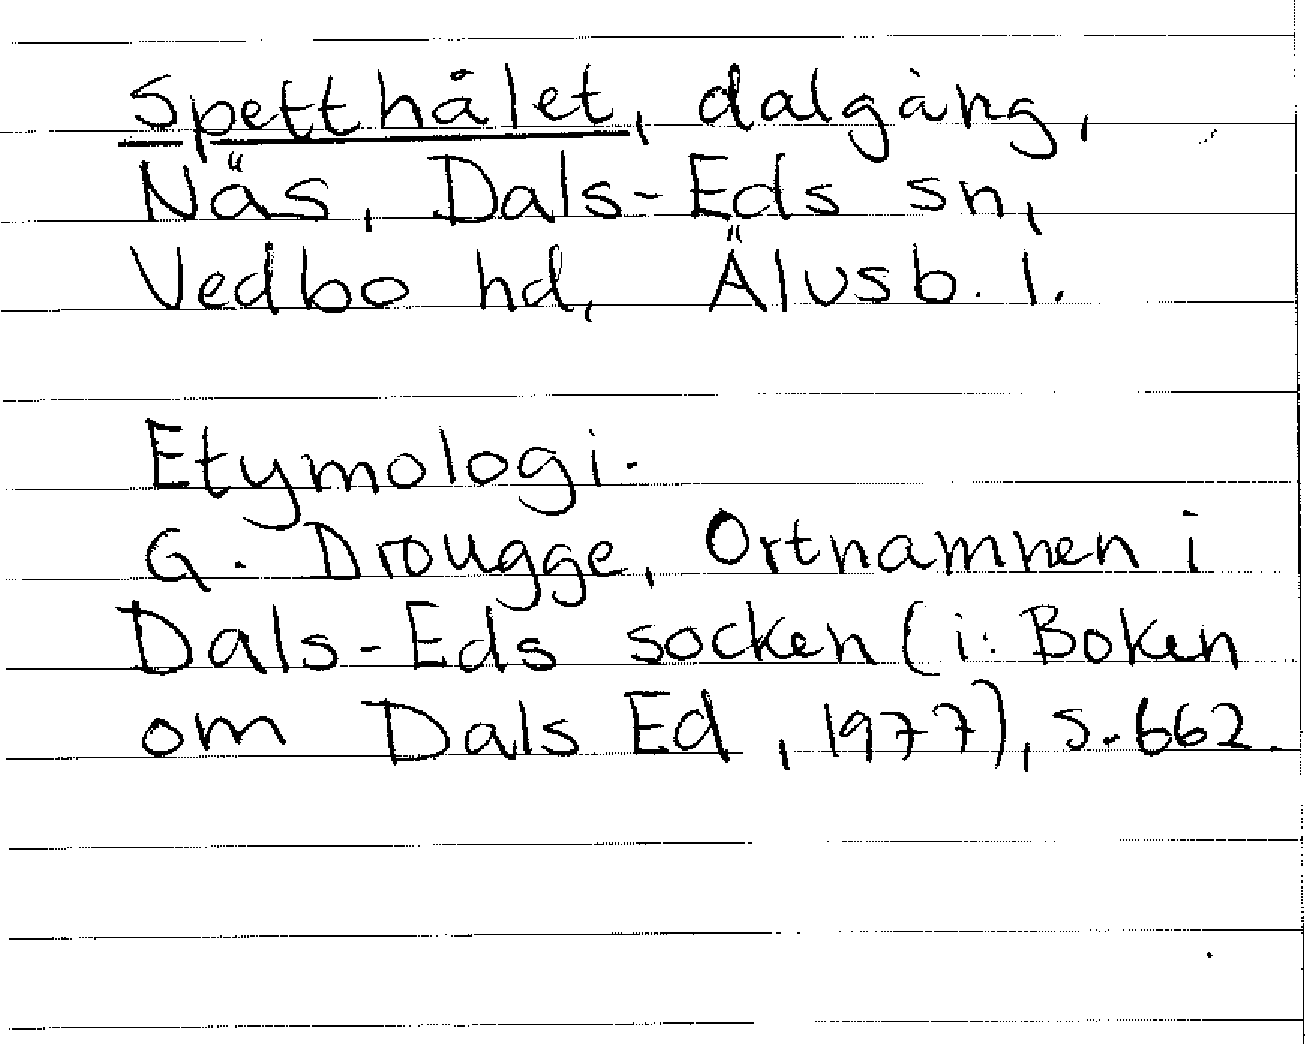 Spetthålet, dalgång,
Näs, Dals-Eds sn,
Vedbo hd, Älvsb. l.
Etymologi.
G. Drougge, Ortnamnen i
Dals-Eds socken (i: Boken
om Dals Ed, 1977), s. 662.